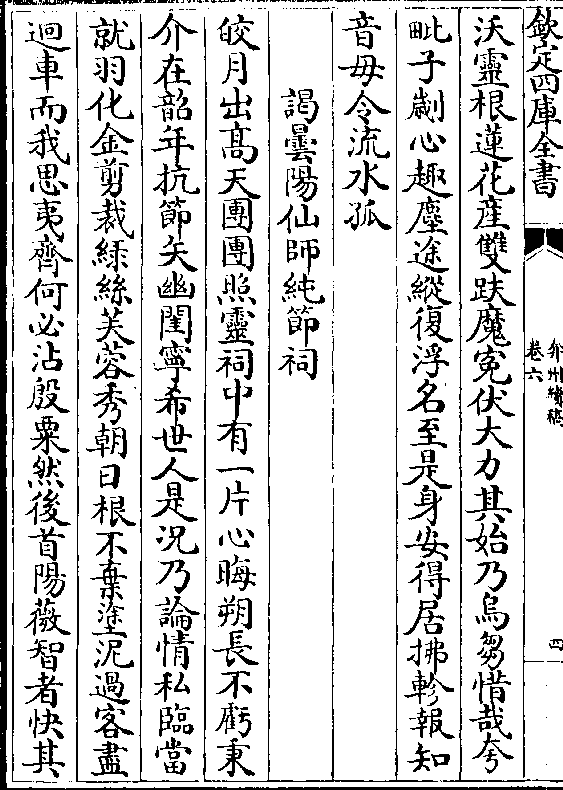 欽定四庫全書
弇州續稿
卷六
四
沃靈根蓮花産雙趺魔寃伏大力其始乃烏芻惜哉夸
毗子劌心趣塵途縱復浮名至是身安得居拂軫報知
音毋令流水孤
謁曇陽仙師純節祠
皎月出髙天團團照靈祠中有一片心晦朔長不虧秉
介在韶年抗節矢幽閨寧希世人是況乃論情私臨當
就羽化金剪裁緑絲芙蓉秀朝日根不棄塗泥過客盡
迴車而我思夷齊何必沾殷粟然後首陽薇智者快其